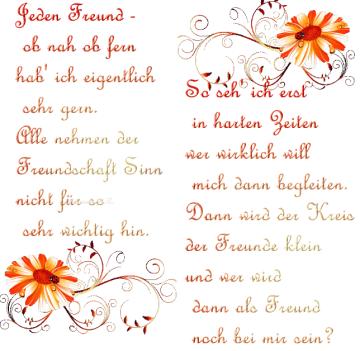 Jeden Freund -
ob nah ob fern
hab' ich eigentlich
sehr gern.
Alle nehmen der
Freundschaft Sinn
nicht für so
sehr wichtig hin.
So seh' ich erst
in harten Zeiten
wer wirklich will
mich dann begleiten.
Dann wird der Kreis
der Freunde klein
und wer wird
dann als Freund
noch bei mir sein?